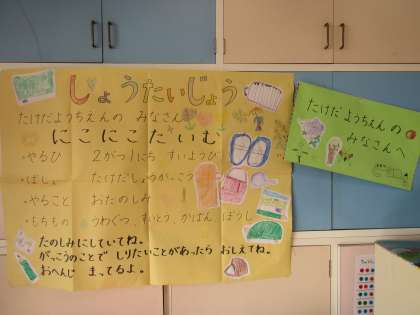 しょうたいじょう
たけだようちえんの みなさん
にこにこたいむ
・やるひ 2がつ1にち すいようび
・ばしょ たけだしょうがっこう
・やること おたのしみ
・もちもの うわぐつ、すいとう、かばん、ぼうし
たのしみにしていてね。
がっこうのことで しりたいことがあったら おしえてね。
おへんじ まってるよ。
たけだようちえんの
みなさんへ